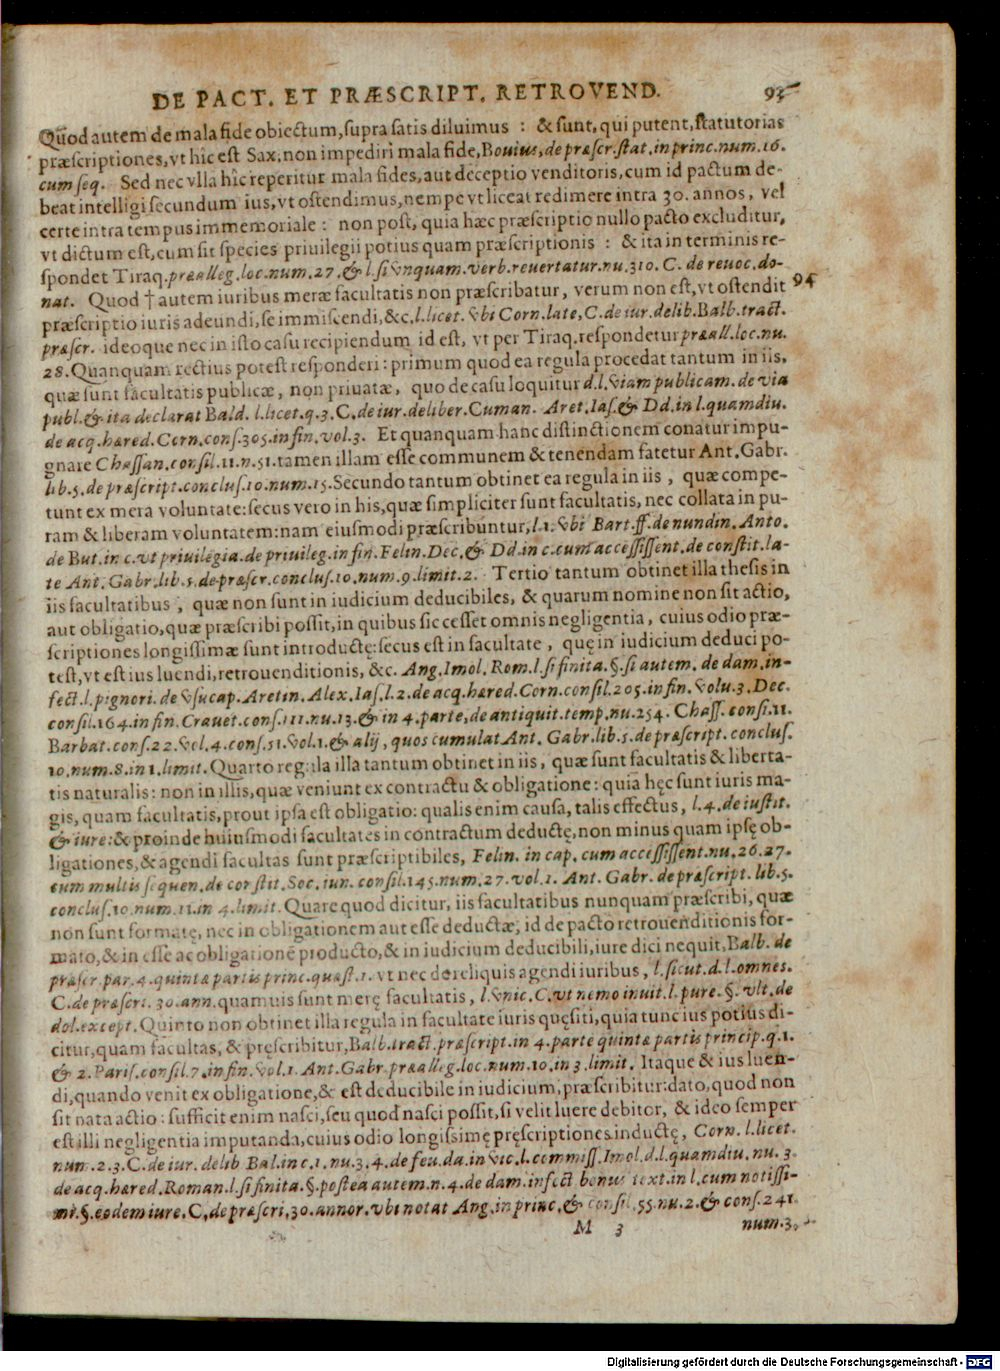 DE PACT. ET PRÆSCRIPT. RETROVEND. 93
Quod autem de mala fide obiectum, supra satis diluimus : & sunt, qui putent, statutorias
præscriptiones, vt hic est Sax. non impediri mala fide, Bouius, de præscr. stat. in princ. num. 16.
cum seq. Sed nec vlla hîc reperitur mala fides, aut deceptio venditoris, cum id pactum de-
beat intelligi secundum ius, vt ostendimus, nempe vt liceat redimere intra 30. annos, vel
certe intra tempus immemoriale : non post, quia hæc præscriptio nullo pacto excluditur,
vt dictum est, cum sit species priuilegii potius quam præscriptionis : & ita in terminis re-
spondet Tiraq. præalleg. loc. num. 27. & l. si vnquam. verb. reuertatur. nu. 310. C. de reuoc. do-
nat. Quod † autem iuribus meræ facultatis non præscribatur, verum non est, vt ostendit 94
præscriptio iuris adeundi, se immiscendi, &c. l. licet. vbi Corn. late, C. de iur. delib. Balb. tract.
præscr. ideoque nec in isto casu recipiendum id est, vt per Tiraq. respondetur præall. loc. nu.
28. Quanquam rectius potest responderi : primum quod ea regula procedat tantum in iis,
quæ sunt facultatis publicæ, non priuatæ, quo de casu loquitur d. l. viam publicam. de via
publ. & ita declarat Bald. l. licet. q. 3. C. de iur. deliber. Cuman. Aret. Ias. & Dd. in l. quamdiu.
de acq. hæred. Corn. cons. 305. in fin. vol. 3. Et quanquam hanc distinctionem conatur impu-
gnare Chassan. consil. 11. n. 51. tamen illam esse communem & tenendam fatetur Ant. Gabr.
lib. 5. de præscript. conclus. 10. num. 15. Secundo tantum obtinet ea regula in iis, quæ compe-
tunt ex mera voluntate: secus vero in his, quæ simpliciter sunt facultatis, nec collata in pu-
ram & liberam voluntatem: nam eiusmodi præscribuntur, l. 1. vbi Bart. ff. de nundin. Anto.
de But. in c. vt priuilegia. de priuileg. in fin. Felin. Dec. & Dd. in c. cum accessissent. de constit. la-
te Ant. Gabr. lib. 5. de præscr. conclus. 10. num. 9. limit. 2. Tertio tantum obtinet illa thesis in
iis facultatibus, quæ non sunt in iudicium deducibiles, & quarum nomine non sit actio,
aut obligatio, quæ præscribi possit, in quibus sic cesset omnis negligentia, cuius odio præ-
scriptiones longissimæ sunt introductę: secus est in facultate, quę in iudicium deduci po-
test, vt est ius luendi, retrouenditionis, &c. Ang. Imol. Rom. l. si finita. §. si autem. de dam. in-
fect. l. pignori. de vsucap. Aretin. Alex. Ias. l. 2. de acq. hæred. Corn. consil. 205. in fin. volu. 3. Dec.
consil. 164. in fin. Crauet. cons. 111. nu. 13. & in 4. parte, de antiquit. temp. nu. 254. Chass. consi. 11.
Barbat. cons. 22. vol. 4. cons. 51. vol. 1. & alij, quos cumulat Ant. Gabr. lib. 5. de præscript. conclus.
10. num. 8. in 1. limit. Quarto regula illa tantum obtinet in iis, quæ sunt facultatis & liberta-
tis naturalis: non in illis, quæ veniunt ex contractu & obligatione: quia hęc sunt iuris ma-
gis, quam facultatis, prout ipsa est obligatio: qualis enim causa, talis effectus, l. 4. de iustit.
& iure: & proinde huiusmodi facultates in contractum deductę, non minus quam ipsę ob-
ligationes, & agendi facultas sunt præscriptibiles, Felin. in cap. cum accessissent. nu. 26. 27.
cum multis sequen. de constit. Soc. iun. consil. 145. num. 27. vol. 1. Ant. Gabr. de præscript. lib. 5.
conclus. 10. num. 11. in 4. limit. Quare quod dicitur, iis facultatibus nunquam præscribi, quæ
non sunt formatę, nec in obligationem aut esse deductæ, id de pacto retrouenditionis for-
mato, & in esse ac obligationē producto, & in iudicium deducibili, iure dici nequit, Balb. de
præscr. par. 4. quintæ partis princ. quæst. 1. vt nec de reliquis agendi iuribus, l. sicut. d. l. omnes.
C. de præscri. 30. ann. quamuis sunt merę facultatis, l. vnic. C. vt nemo inuit. l. pure. §. vlt. de
dol. except. Quinto non obtinet illa regula in facultate iuris quęsiti, quia tunc ius potius di-
citur, quam facultas, & pręscribitur, Balb. tract. præscript. in 4. parte quintæ partis princip. q. 1.
& 2. Paris. consil. 7. in fin. vol. 1. Ant. Gabr. præalleg. loc. num. 10. in 3. limit. Itaque & ius luen-
di, quando venit ex obligatione, & est deducibile in iudicium, præscribitur: dato, quod non
sit nata actio: sufficit enim nasci, seu quod nasci possit, si velit luere debitor, & ideo semper
est illi negligentia imputanda, cuius odio longissimę pręscriptiones inductę, Corn. l. licet.
num. 2. 3. C. de iur. delib Bal. in c. 1. nu. 3. 4. de feu. da. in vic. l. commiss. Imol. d. l. quamdiu. nu. 3.
de acq. hæred. Roman. l. si finita. §. postea autem. n. 4. de dam. infect bonus text. in l. cum notissi-
mi. §. eodem iure. C. de præscri. 30. annor. vbi notat Ang. in princ. & consil. 55. nu. 2. & cons. 241
M 3 num. 3.
Digitalisierung gefördert durch die Deutsche Forschungsgemeinschaft - DFG